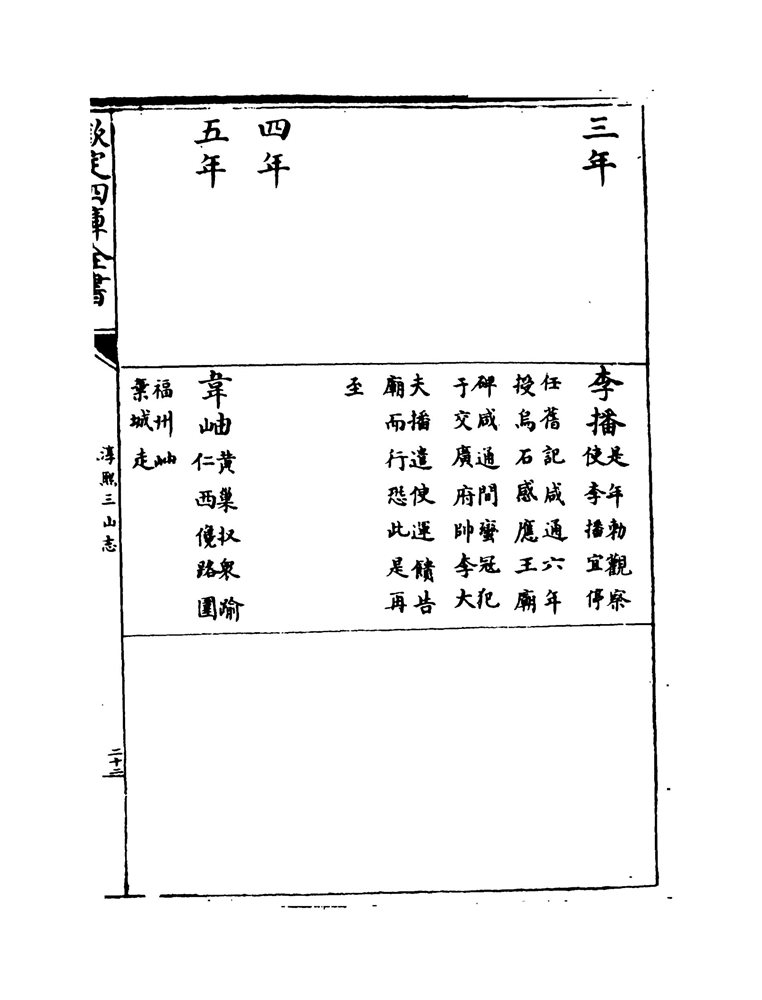 三年
李播
是年勅觀察
使李播宜停
任舊記咸通六年
授烏石感應王廟
碑咸通間蠻冦犯
于交廣府帥李大
夫播遣使運饋告
廟而行恐此是再
至
四年
五年
韋岫
黄巢収衆踰
仁西俛路圍
福州岫
棄城走
欽定四庫全書
淳熙三山志
二十二